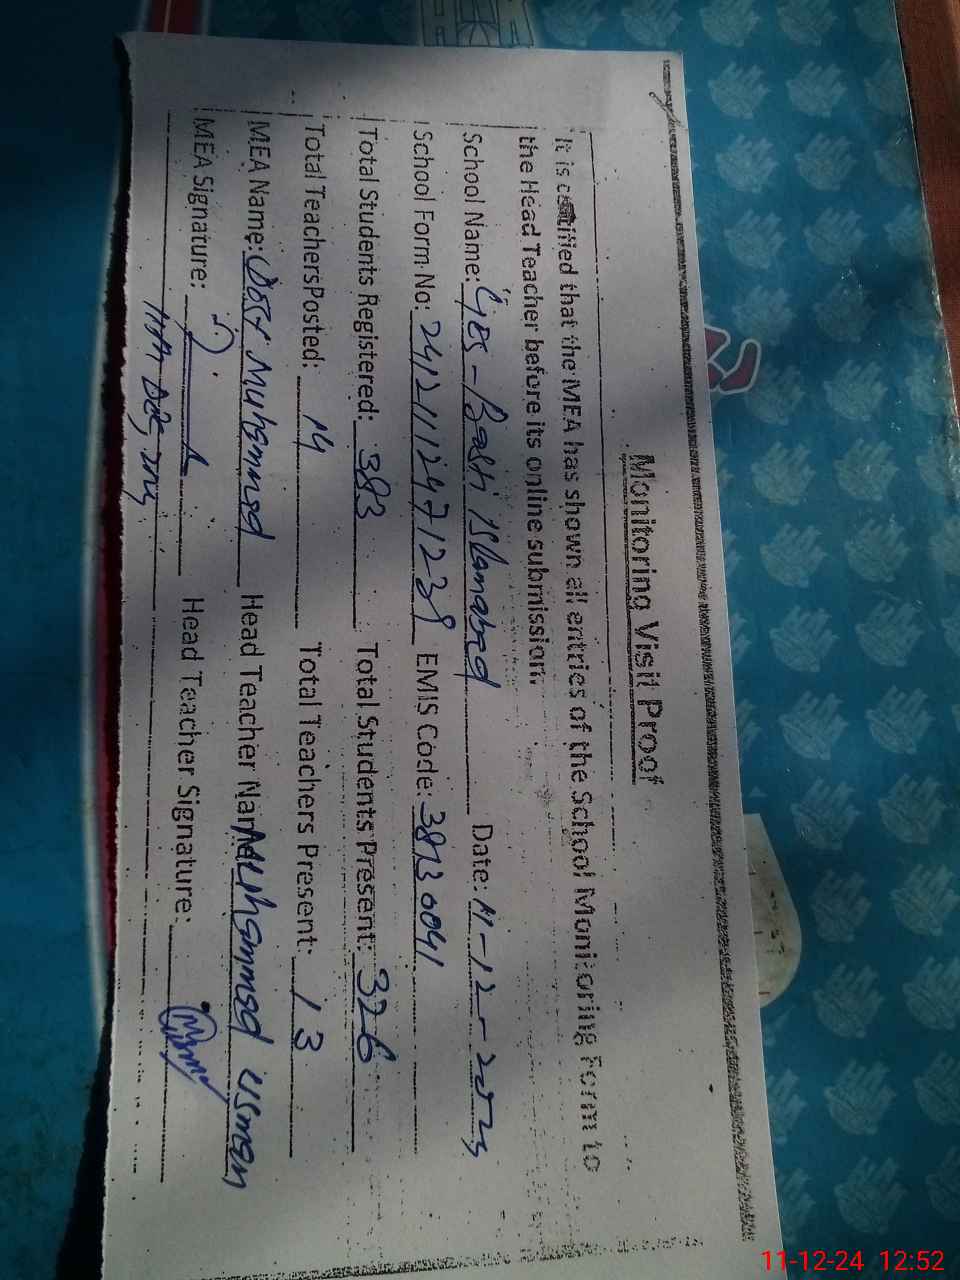 Monitoring Visit Proof
It is certified that the MEA has shown all entries of the School Monitoring Form to
the Head Teacher before its online submission.
School Name: GPS - Basti Islamabad Date: 11-12-2024
School Form No: 24121112471239 EMIS Code: 38130041
Total Students Registered: 383 Total Students Present: 326
Total Teachers Posted: 14 Total Teachers Present: 13
MEA Name: Dost Muhammad Head Teacher Name Muhammad Usman
MEA Signature: Head Teacher Signature:
11th Dec, 2024
11-12-24 12:52